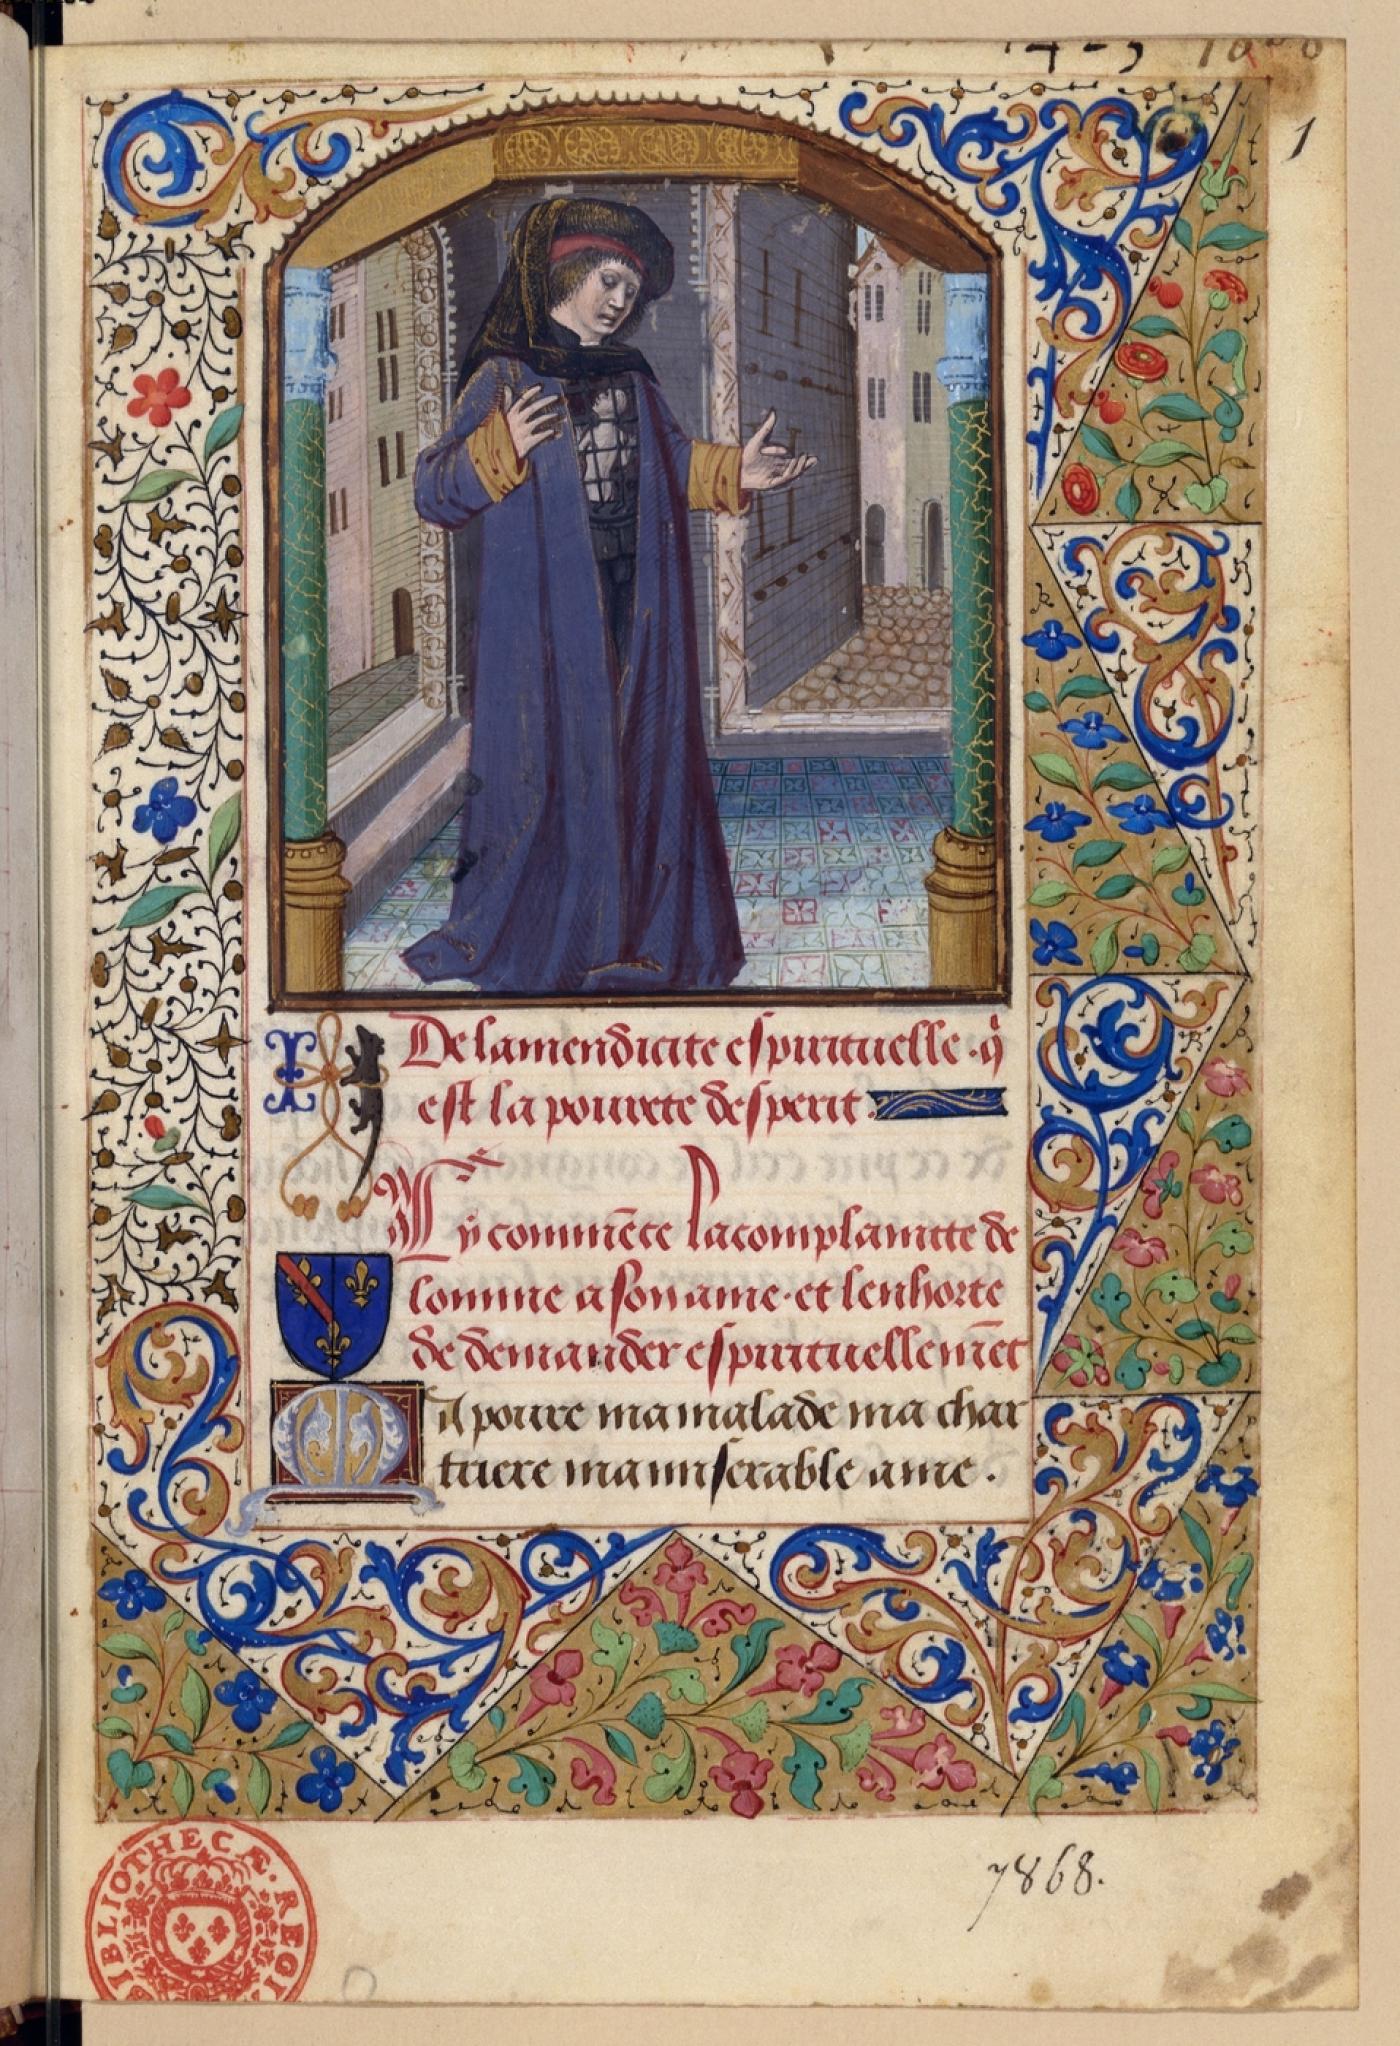 1
De la mendicite espirituelle · q̄
est la pourete desperit ·
Cy comme͂ce la complaintte de
lomme a son ame · et lenhorte
de demander espirituellem̄et
Ma poure ma malade ma char
triere ma miserable ame ·
7868.
BIBLIOTHECÆ REGI